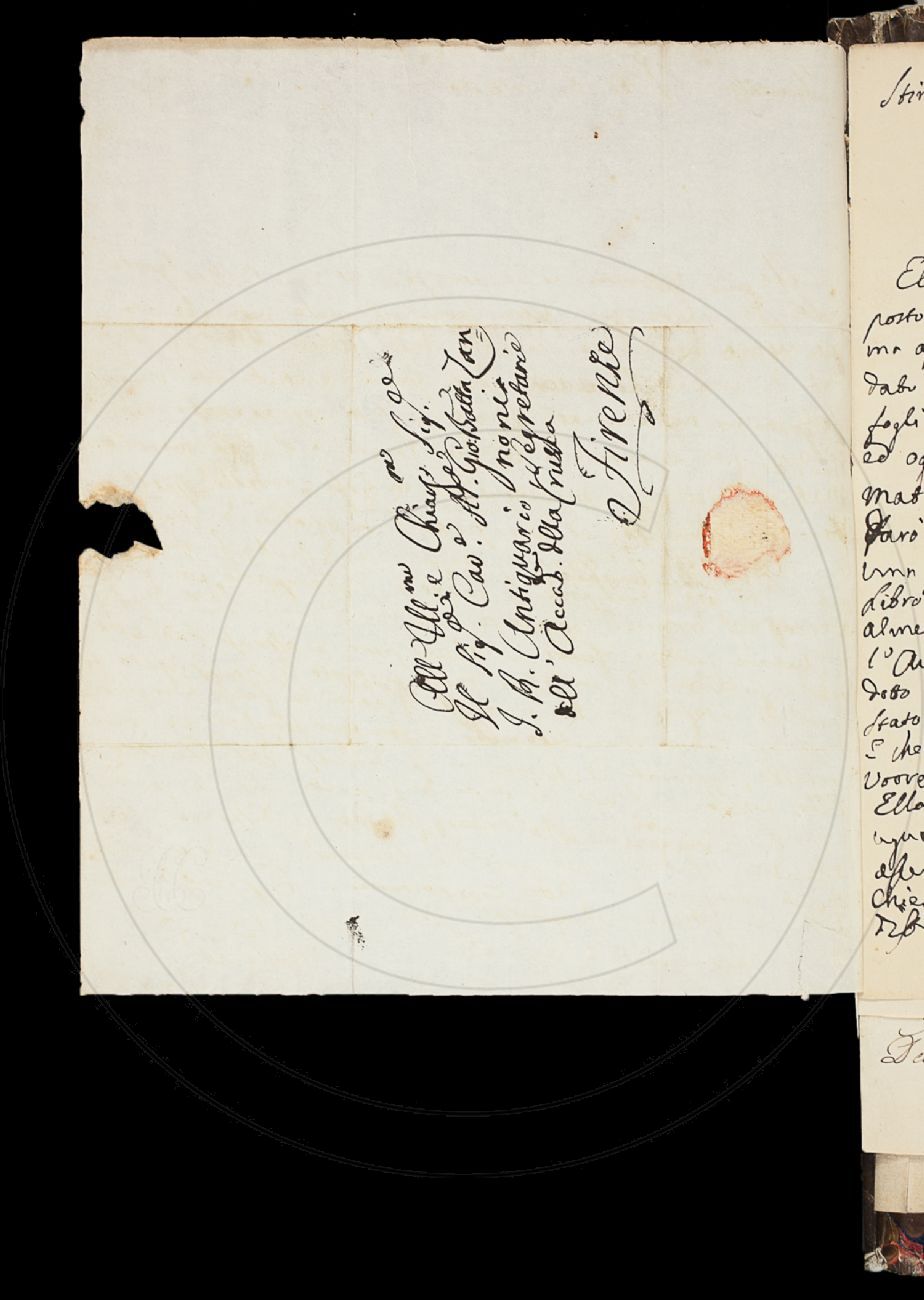 All' Ill.mo e Chiar.mo Sig. 
Il Sig. Cav.e Ab.e Gio: Batta Zan=
noni
I. R. Antiquario e Segretario
dell' Accad. della Crusca
Firenze
Stim
El
posto
ma a
dato
fogli
ed og
Mat
faro
Libro
alme
l'Au
detto
Stato
è che
vorre
Ella
Chie